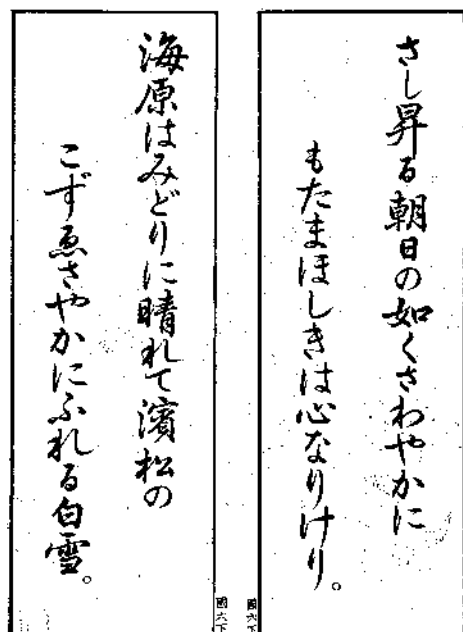 さし昇る朝日の如くさわやかに
もたまほしきは心なりけり。
國六下
海原はみどりに晴れて濱松の
こずゑさやかにふれる白雪。
國六下